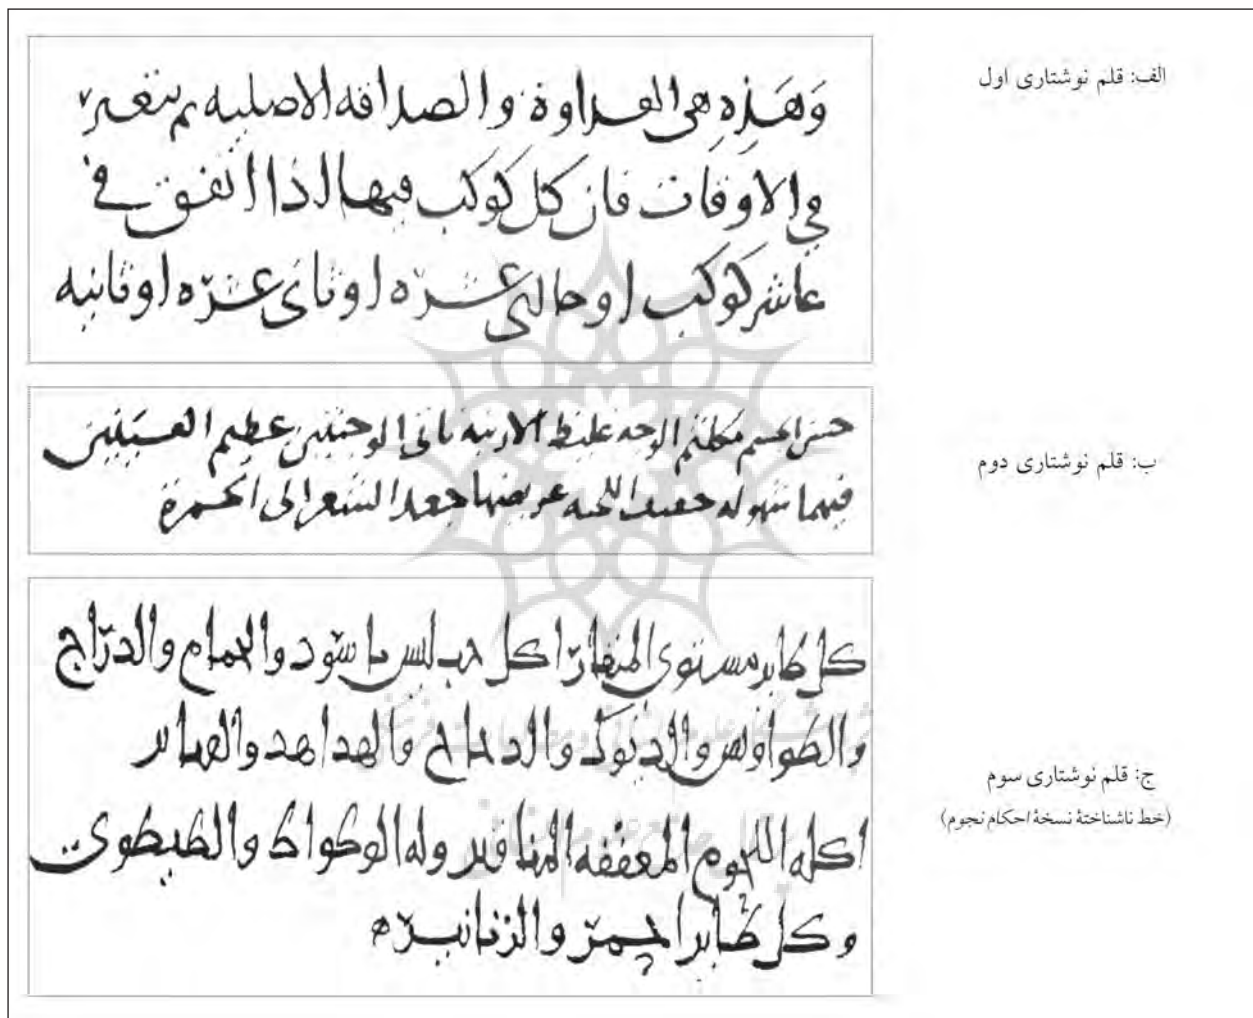 الف: قلم نوشتاری اول
وَهَذِهِ هی العداوة والصداقه الاصلیه ثم یتغیر
فی الاوقات فان کل کوکب فیها اذا اتفق فی
عاشر کوکب او حادی عشره او ثانی عشره او ثانیه
ب: قلم نوشتاری دوم
حسن الجسم الوجه غلیظ الارنبه ناتی الوجنتین عظیم العینین
فیهما شهوله خفیف اللحیه عریضها جعد الشعر الی الحمرة
ج: قلم نوشتاری سوم
(خط ناشناختهٔ نسخهٔ احکام نجوم)
کل طایر مستوی المنقار اکل حب لیس باسود والحمام والدرّاج
والطواویس والدیوک والدجاج والهداهد
اکله اللحوم المعقفه المناقیر وله الوطواط والطیطوی
وکل طایر احمر والزنانیر